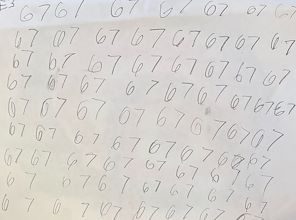 67 67 67 67 67 67 67
67 67 67 67 67 67 67 67 67
67 67 67 67 67 67 67 67 67
67 67 67 67 67 67 67 67 67
67 67 67 67 67 67 67 67 67
67 67 67 67 67 67 67 67 67
67 67 67 67 67 67 67 67 67
67 67 67 67 67 67 67 67
67 67 67 67 67 67 67 67